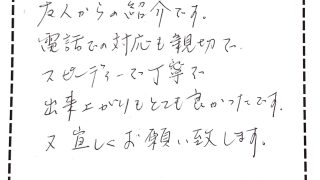 友人からの紹介です。
電話での対応も親切で
スピーディーで丁寧で
出来上がりもとても良かったです。
又宜しくお願い致します。